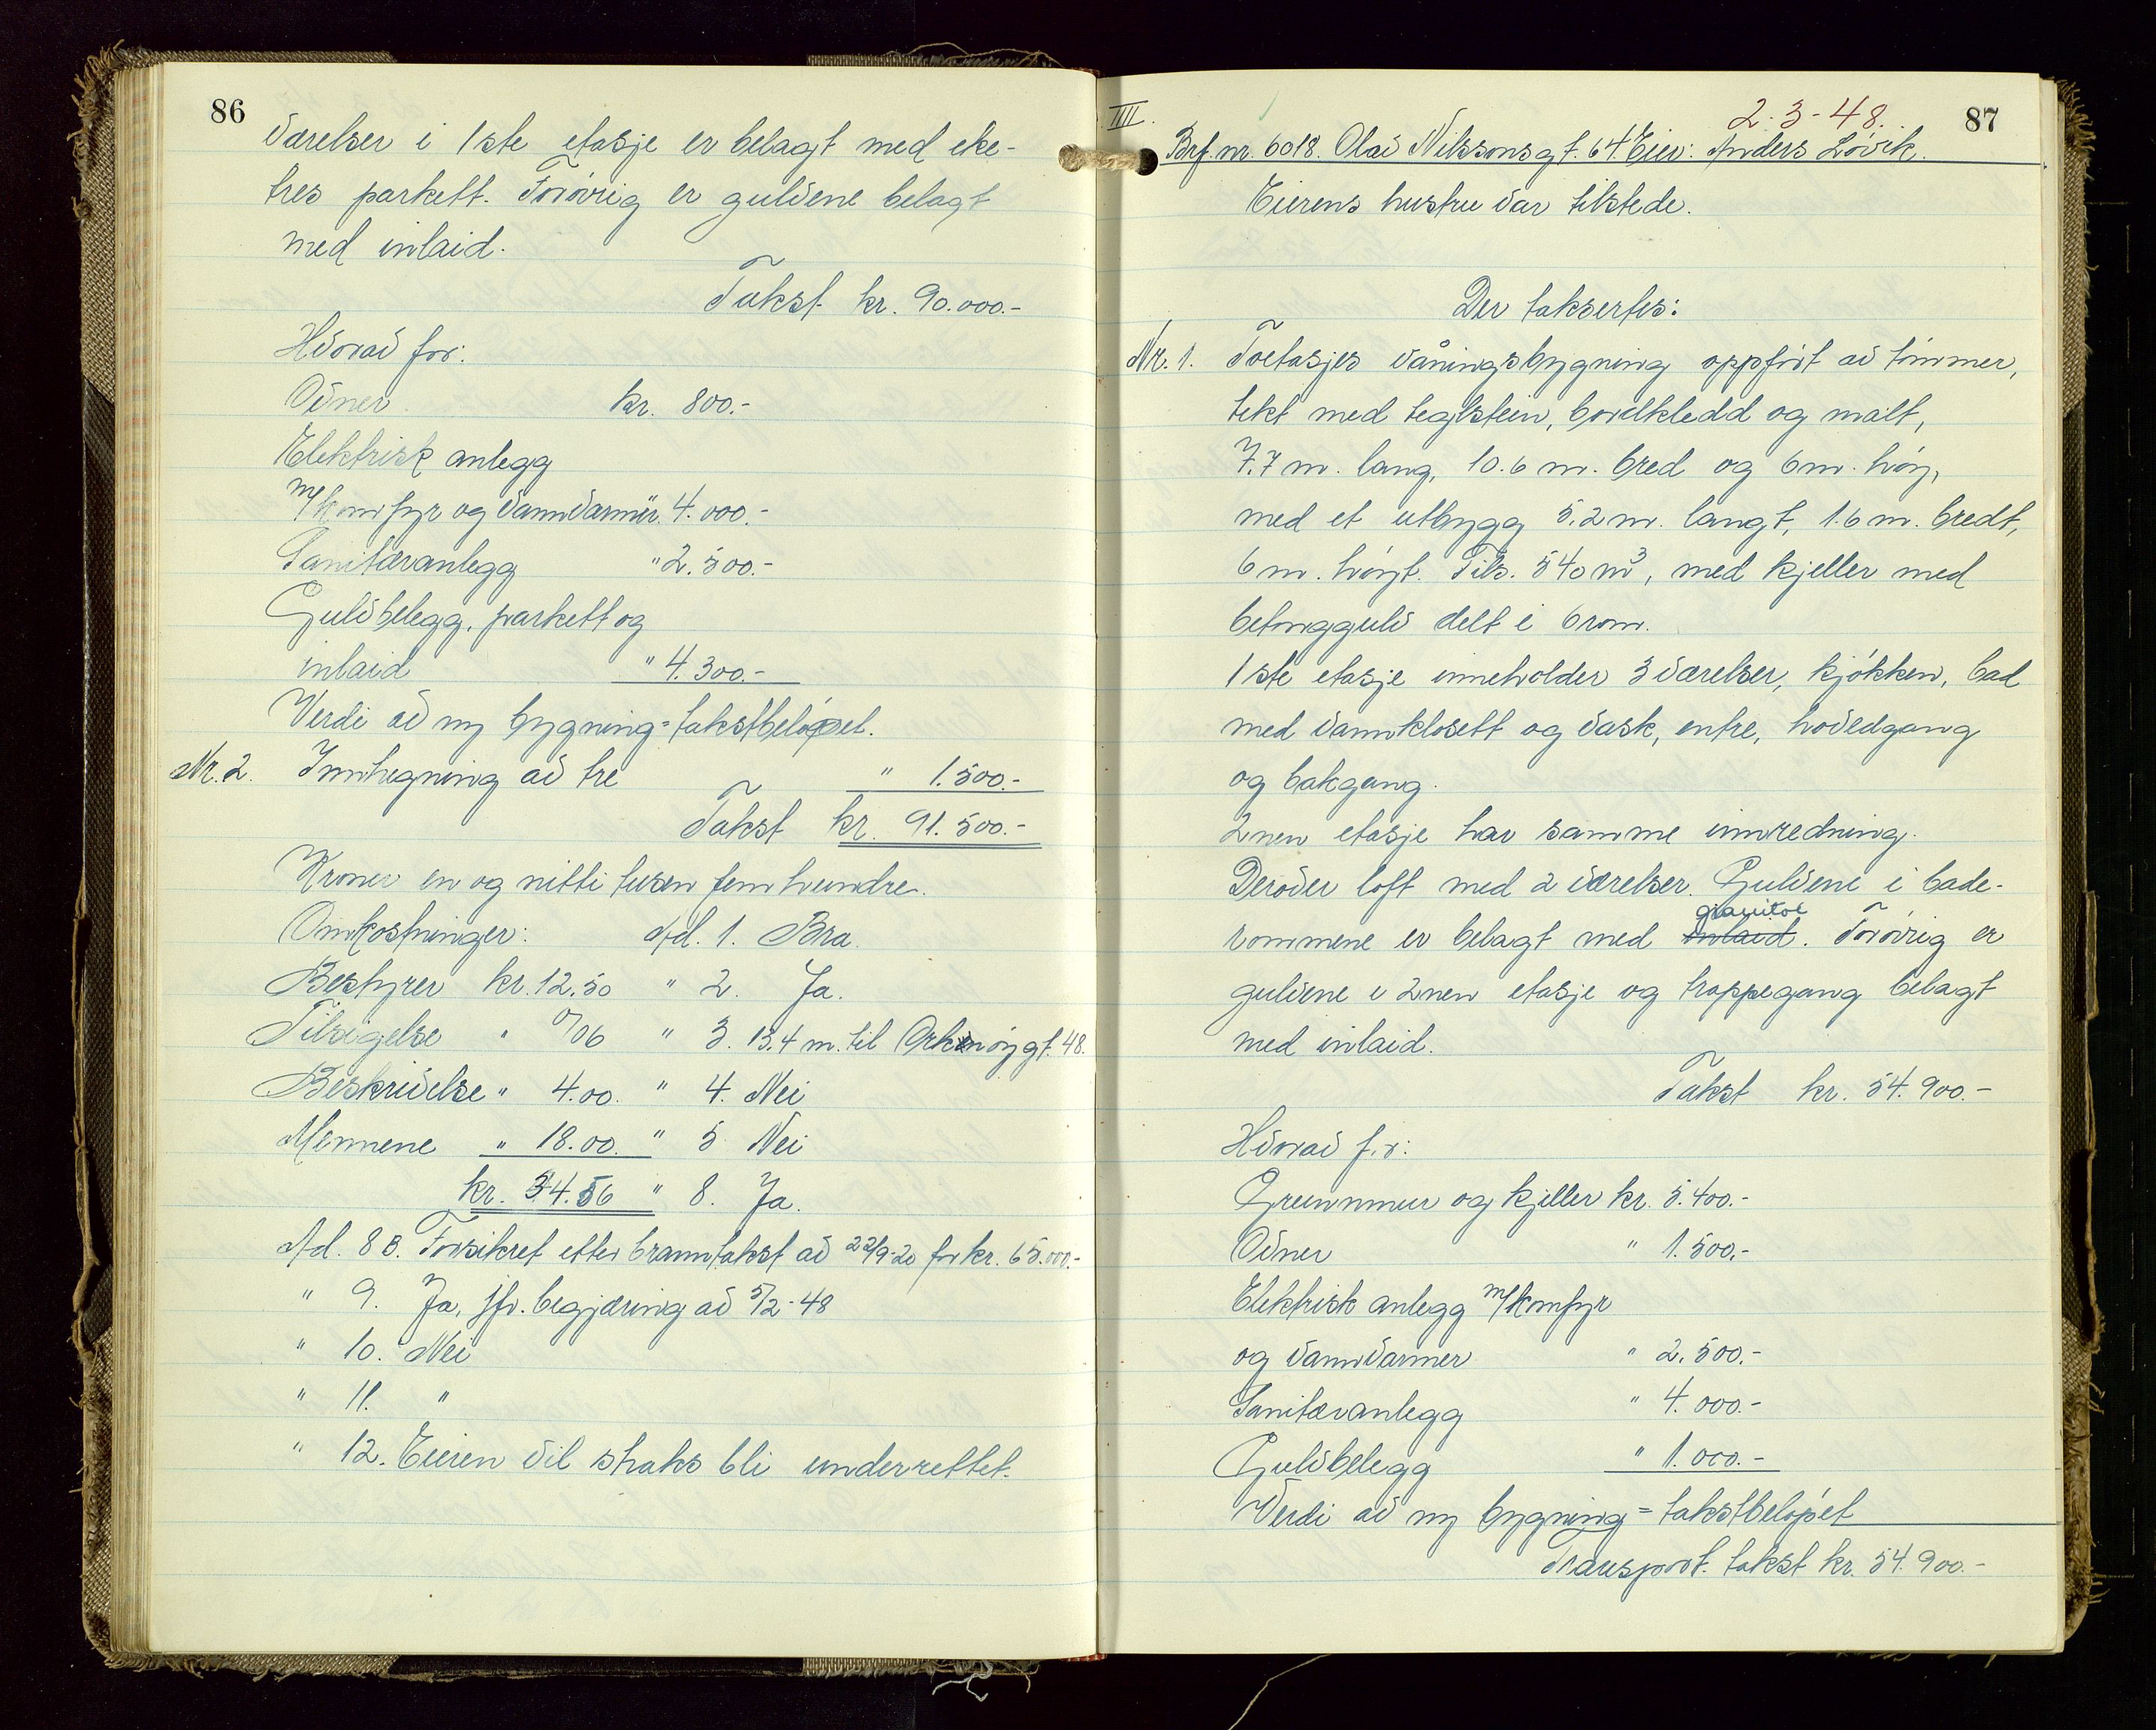 86
værelser i 1ste etasje er belagt med eke-
tres parkett. Forøvrig er gulvene belagt
med inlaid.
Takst kr. 90.000.-
Hvorav for:
Ovner kr. 800.-
Elektrisk anlegg
m/komfyr og vannvarmer " 4.000.-
Sanitæranlegg " 2.500.-
Gulvbelegg, parkett og
inlaid " 4.300.-
Verdi av ny bygning = takstbeløpet.
Nr. 2. Innhegning av tre " 1.500.-
Takst kr. 91.500.-
Kroner en og nitti tusen fem hundre.
Omkostninger: Ad. 1. Bra.
Bestyrer kr. 12.50 " 2. Ja.
Tilsigelse " 0/06 " 3. 13.4 m. til Orknøygt. 48.
Beskrivelse " 4.00. " 4. Nei
Mennene " 18.00. " 5 Nei
kr. 34.56 " 8. Ja.
Ad. 8 B. Forsikret etter branntakst av 22/9-20 for kr. 65.000.-
" 9. Ja, jfr. begjæring av 5/2-48
" 10. Nei
" 11. "
" 12. Eieren vil straks bli underrettet.
2-3-48.
87
IIII.
Brf. nr. 6018. Olav Nilssonsgt. 64 Eier: Anders Løvik.
Eierens hustru var tilstede.
Der taksertes:
Nr. 1. Toetasjes våningsbygning oppført av tømmer,
tekt med teglstein, bordkledd og malt,
7.7 m. lang, 10.6 m. bred og 6 m. høy,
med et utbygg 5.2 m. langt, 1.6 m. bredt,
6 m. høyt. Tils. 540 m³, med kjeller med
betonggulv delt i 6 rom.
1ste etasje inneholder 3 værelser, kjøkken, bad
med vannklosett og vask, entre, hovedgang
og bakgang.
2nen etasje har samme innredning.
Derover loft med 2 værelser. Gulvene i bade-
granitol
rommene er belagt med inlaid. Forøvrig er
gulvene i 2nen etasje og trappegang belagt
med inlaid.
Takst kr. 54.900.-
Hvorav for:
Grunnmur og kjeller kr. 5.400.-
Ovner " 1.500.-
Elektrisk anlegg m/komfyr
og vannvarmer " 2.500.-
Sanitæranlegg " 4.000.-
Gulvbelegg " 1.000.-
Verdi av ny bygning = takstbeløpet
Transport. takst kr. 54.900.-